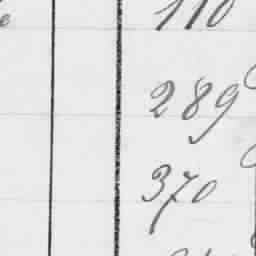 110
289
370